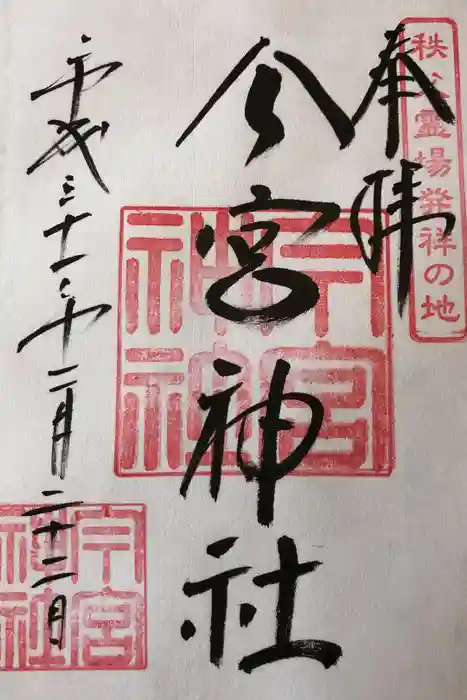 秩父霊場発祥の地
奉拝
今宮神社
今宮
神社
平成三十年十二月二十二日
今宮
神社